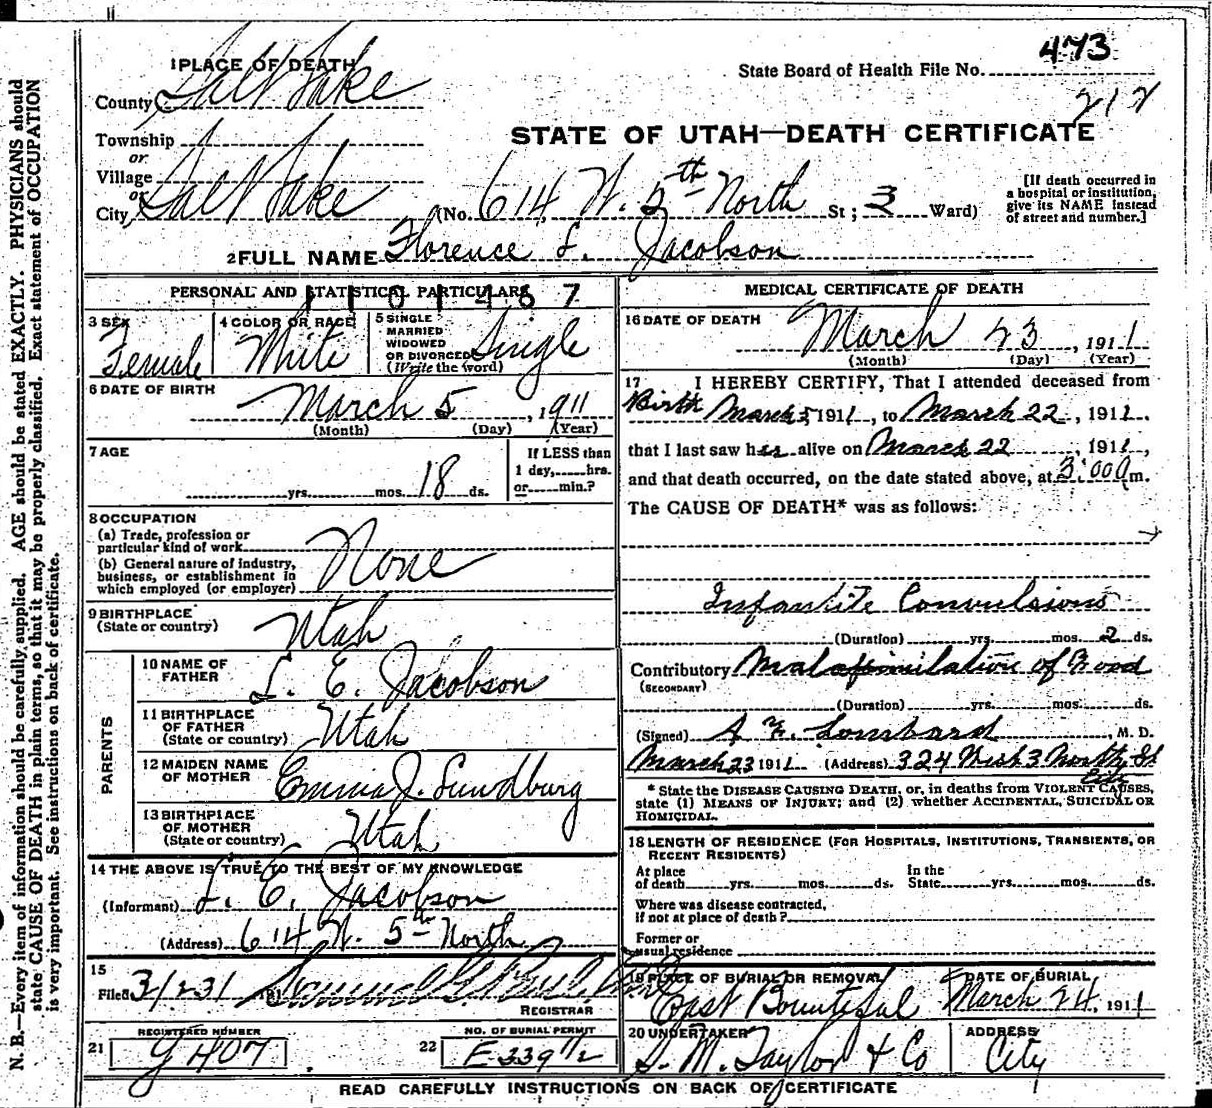 473
State Board of Health File No.
212
1 PLACE OF DEATH
County Salt Lake
Township
or
Village
or
City Salt Lake
STATE OF UTAH—DEATH CERTIFICATE
(No. 614 W. 5th North St; 3 Ward)
[If death occurred in
a hospital or institution,
give its NAME instead
of street and number.]
2 FULL NAME Florence L. Jacobson
PERSONAL AND STATISTICAL PARTICULARS
1101467
3 SEX
Female
4 COLOR OR RACE
White
5 SINGLE
MARRIED
WIDOWED
OR DIVORCED
(Write the word)
Single
6 DATE OF BIRTH
March 5, 1911
(Month) (Day) (Year)
7 AGE
yrs. mos. 18 ds.
If LESS than
1 day, hrs.
or min.?
8 OCCUPATION
(a) Trade, profession or
particular kind of work
(b) General nature of industry,
business, or establishment in
which employed (or employer)
None
9 BIRTHPLACE
(State or country)
Utah
PARENTS
10 NAME OF
FATHER
L. E. Jacobson
11 BIRTHPLACE
OF FATHER
(State or country)
Utah
12 MAIDEN NAME
OF MOTHER
Emma J. Sundburg
13 BIRTHPLACE
OF MOTHER
(State or country)
Utah
14 THE ABOVE IS TRUE TO THE BEST OF MY KNOWLEDGE
(Informant) L. E. Jacobson
(Address) 614 W. 5th North
15
Filed 3/231
REGISTRAR
REGISTERED NUMBER
21
407
NO. OF BURIAL PERMIT
22
E 339 1/2
MEDICAL CERTIFICATE OF DEATH
16 DATE OF DEATH
March 23, 1911
(Month) (Day) (Year)
17 I HEREBY CERTIFY, That I attended deceased from
Birth March 5, 1911, to March 22, 1911.
that I last saw her alive on March 22, 1911,
and that death occurred, on the date stated above, at 3:00 a m.
The CAUSE OF DEATH* was as follows:
Infantile Convulsions
(Duration) yrs. mos. 2 ds.
Contributory Malassimilation of Food
(SECONDARY)
(Duration) yrs. mos. ds.
(Signed) A. E. Lombard, M. D.
March 23 1911 (Address) 324 West 3 North St
City
* State the DISEASE CAUSING DEATH, or, in deaths from VIOLENT CAUSES,
state (1) MEANS OF INJURY; and (2) whether ACCIDENTAL, SUICIDAL OR
HOMICIDAL.
18 LENGTH OF RESIDENCE (FOR HOSPITALS, INSTITUTIONS, TRANSIENTS, OR
RECENT RESIDENTS)
At place
of death yrs. mos. ds.
In the
State yrs. mos. ds.
Where was disease contracted,
if not at place of death?
Former or
usual residence
19 PLACE OF BURIAL OR REMOVAL
East Bountiful
DATE OF BURIAL
March 24, 1911
20 UNDERTAKER
S. M. Taylor & Co
ADDRESS
City
READ CAREFULLY INSTRUCTIONS ON BACK OF CERTIFICATE
N. B.—Every item of information should be carefully supplied. AGE should be stated EXACTLY. PHYSICIANS should
state CAUSE OF DEATH in plain terms, so that it may be properly classified. Exact statement of OCCUPATION
is very important. See instructions on back of certificate.